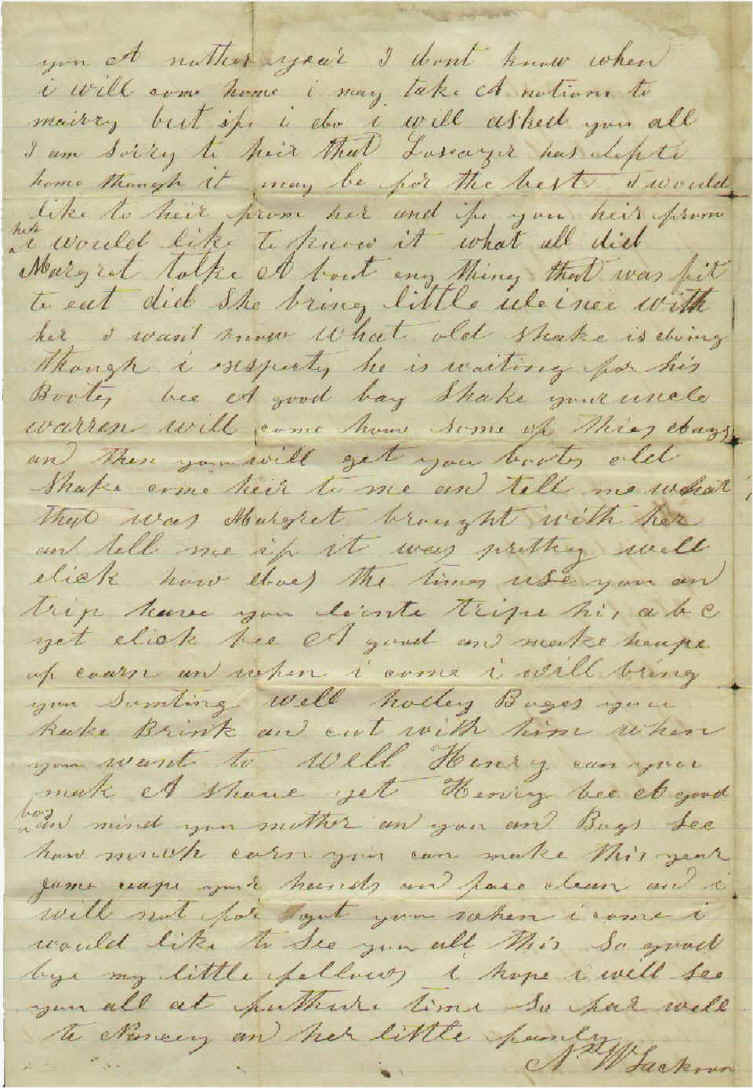 you A nother year I dont know when
i will com home i may take A notion to
mairry but ife i do i will asked you all
I am Sorry to heir that has
home though it may be for the best i would
like to heir from her and ife you heir from
her i would like to know it what all did
Margret talke A bout eny thing that was fit
to eat did She bring little with
her i want know what old Shake is doing
though i he is waiting for his
Bootes bee A good bay Shake your uncle
warren will come home Some of thies days
an then you will get you bootes old
Shake come heir to me an tell me what
that was Margret brought with her
an tell me ife it was prittey well
click how does the times use you an
trip have you tripe his a b c
yet click bee A good an make heape
of coarn an when i come i will bring
you Somting well Boges you
take Brink an with him when
you want to Well Henry can you
mak A Shoue yet Henry bee A good
boy an mind you mother an you an Bogs See
how much corn you can make this year
your hands an face clean an i
will not for gut you when i come i
would like to See you all this So good
bye my little fellows i hope i will See
you all at futhure time So far well
to Nancey an her little famly
W Jackson